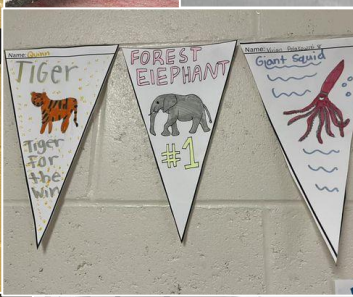 Name: Quinn
Tiger
Tiger
for
the
Win
FOREST
ELEPHANT
#1
Name:
Giant Squid